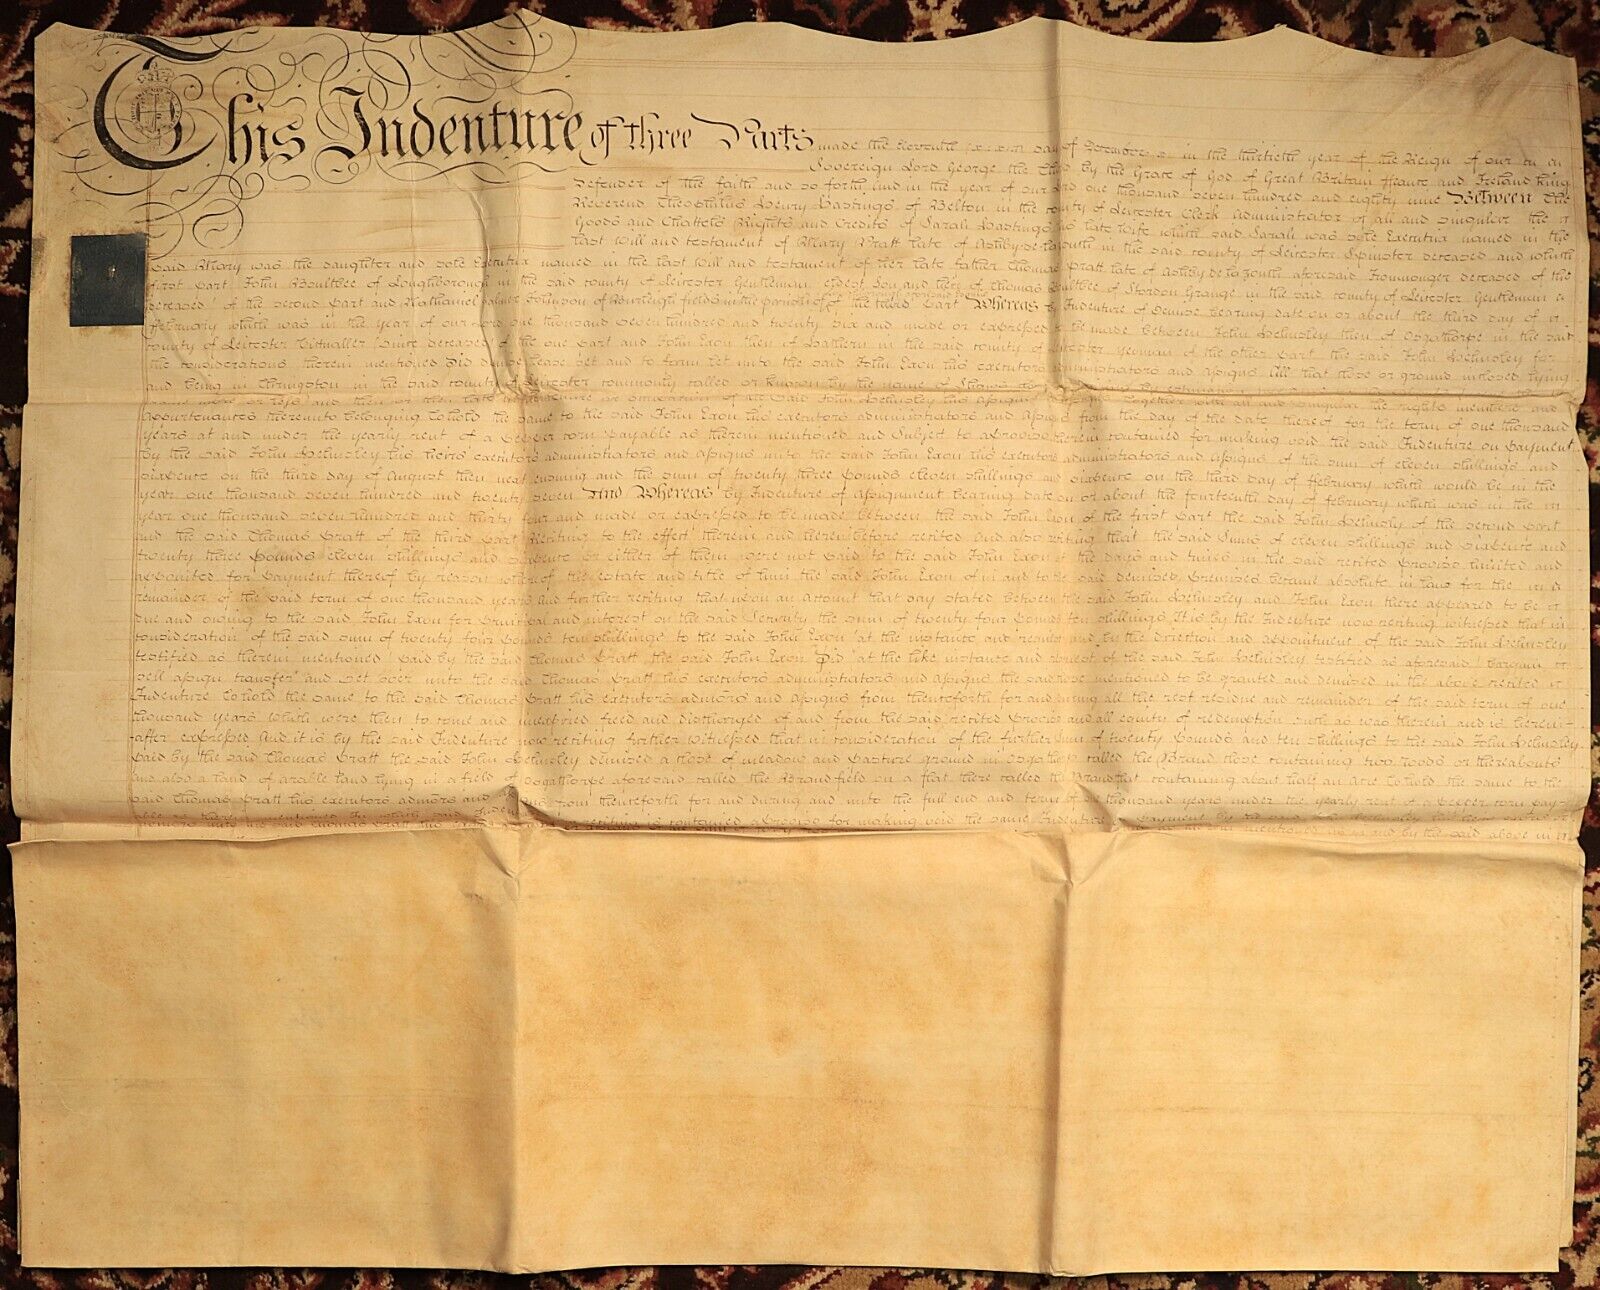 This Indenture of three Parts made the Eleventh day of December in the thirtieth year of the Reign of our
Sovereign Lord George the Third by the Grace of God of Great Britain France and Ireland King
Defender of the faith and so forth and in the year of our Lord one thousand seven hundred and eighty nine Between The
Reverend Theophilus Henry Hastings of Belton in the county of Leicester Clerk Administrator of all and singular the
Goods and Chattels Rights and Credits of Sarah Hastings his late Wife which said Sarah was sole Executrix named in the
last Will and testament of Mary Pratt late of Ashby de la Zouth in the said county of Leicester Spinster deceased and which
said Mary was the daughter and sole Executrix named in the last Will and testament of her late father Thomas Pratt late of Ashby de la Zouth aforesaid Ironmonger deceased of the
first part John Boultbee of Loughborough in the said county of Leicester Gentleman eldest Son and Heir of Thomas Boultbee of Stordon Grange in the said county of Leicester Gentleman
deceased of the second part and Nathaniel Palmer Johnson of Burleigh fields in the parish of of the third part Whereas by Indenture of Demise bearing date on or about the third day of
February which was in the year of our Lord one thousand seven hundred and twenty six and made or expressed to be made between John Helmsley then of Osgathorpe in the said
county of Leicester Victualler (since deceased) of the one part and John Exon then of Hathern in the said county of Leicester yeoman of the other part the said John Helmsley for
the considerations therein mentioned Did demise lease set and to farm let unto the said John Exon his executors administrators and assigns All that close or ground inclosed lying
and being in Thringston in the said county of Leicester commonly called or known by the name of
more or less and then or the late in the tenure or occupation of the said John Helmsley his Assigns Together with all and singular the rights members and
Appurtenances thereunto belonging To hold the same to the said John Exon his executors administrators and Assigns from the day of the date thereof for the term of one thousand
years at and under the yearly rent of a pepper corn payable as therein mentioned and Subject to a proviso therein contained for making void the said Indenture on payment
by the said John Helmsley his heirs executors administrators and assigns unto the said John Exon his executors administrators and assigns of the sum of eleven shillings and
sixpence on the third day of August then next ensuing and the sum of twenty three pounds eleven shillings and sixpence on the third day of February which would be in the
year one thousand seven hundred and twenty seven And Whereas by Indenture of Assignment bearing date on or about the fourteenth day of February which was in the
year one thousand seven hundred and thirty four and made or expressed to be made between the said John Exon of the first part the said John Helmsley of the second part
and the said Thomas Pratt of the third part Reciting to the effect therein and herein before recited And also reciting that the said Sums of eleven shillings and sixpence and
twenty three pounds eleven shillings and sixpence or either of them were not paid to the said John Exon at the days and times in the said recited proviso limited and
appointed for payment thereof by reason whereof the estate and title of him the said John Exon of in and to the said demised premises became absolute in law for the
remainder of the said term of one thousand years And further reciting that upon an account that day stated between the said John Helmsley and John Exon there appeared to be
due and owing to the said John Exon for principal and interest on the said Security the sum of twenty four pounds ten shillings It is by the Indenture now reciting witnessed that in
consideration of the said sum of twenty four pounds ten shillings to the said John Exon at the instance and request and by the direction and appointment of the said John Helmsley
testified as therein mentioned paid by the said Thomas Pratt the said John Exon Did at the like instance and request of the said John Helmsley testified as aforesaid bargain
sell assign transfer and set over unto the said Thomas Pratt his executors administrators and assigns the said close mentioned to be granted and demised in the above recited
Indenture To hold the same to the said Thomas Pratt his executors admors and assigns from thenceforth for and during all the rest residue and remainder of the said term of one
thousand years which were then to come and unexpired freed and discharged of and from the said recited proviso and all equity of redemption such as was therein and is herein
after expressed And it is by the said Indenture now reciting further Witnessed that in consideration of the further Sum of twenty pounds and ten shillings to the said John Helmsley
paid by the said Thomas Pratt the said John Helmsley demised a close of meadow and pasture ground in Osgathorpe called the Brand close containing two roods or thereabouts
and also a land of arable land lying in a field of Osgathorpe aforesaid called the Brandfield on a flat there called the Brandflat containing about half an Acre To hold the same to the
said Thomas Pratt his executors admors and assigns from thenceforth for and during and unto the full end and term of one thousand years under the yearly rent of a pepper corn pay-
able as therein mentioned In which said Indenture reciting is contained a proviso for making void the same Indenture payment by the said